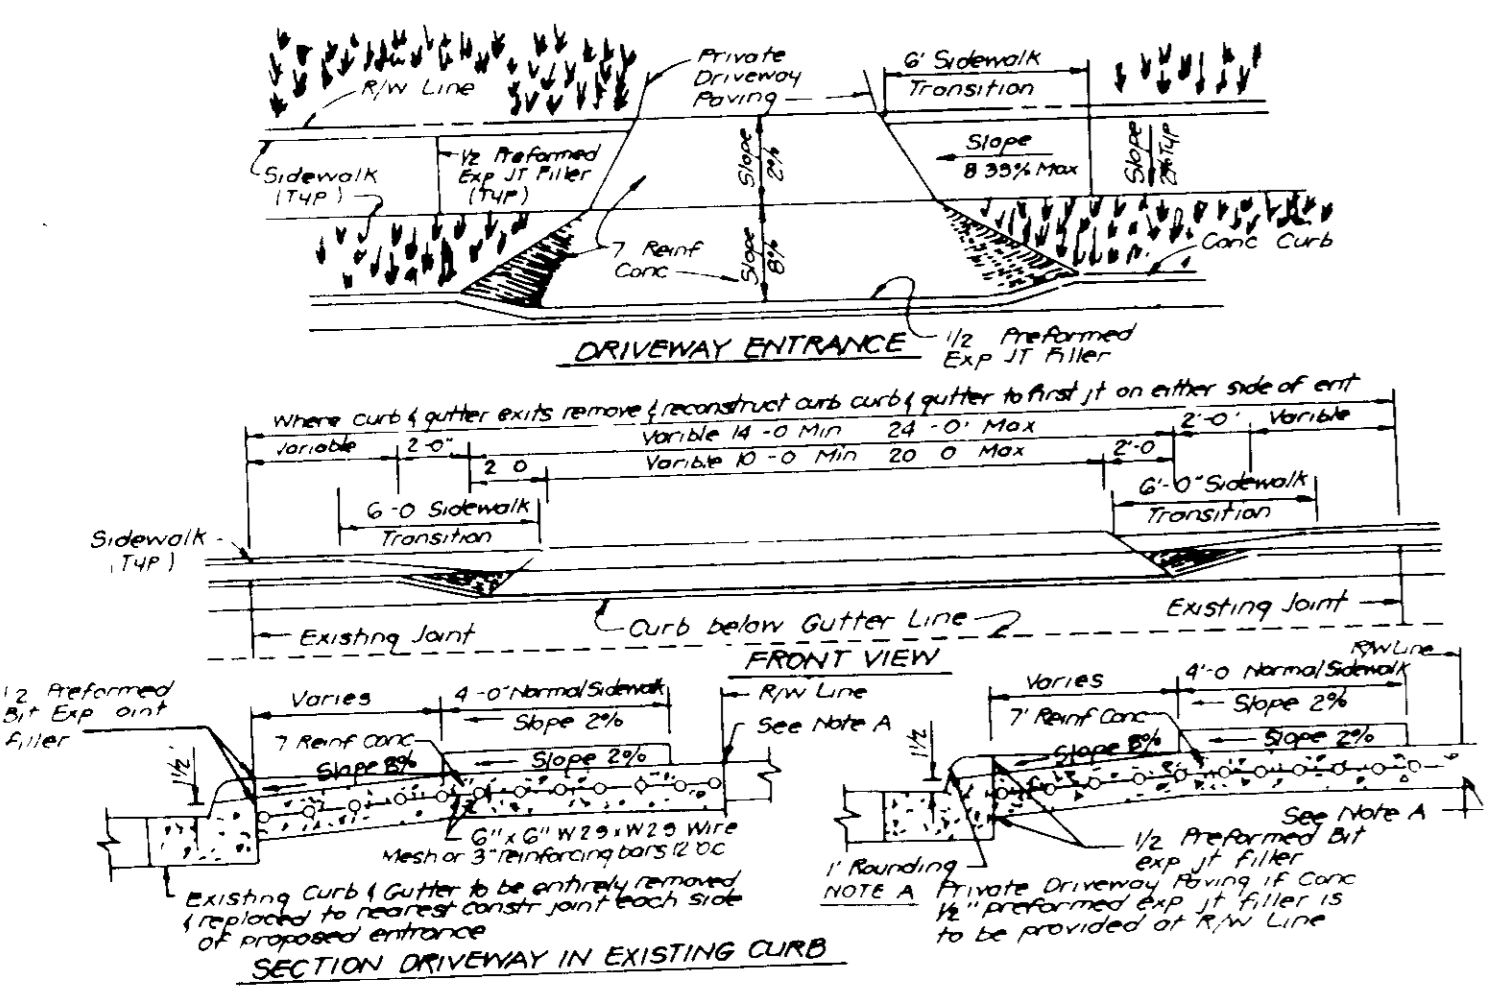 Private
Driveway
Paving
6' Sidewalk
Transition
R/W Line
Slope
2%
Slope
8 33% Max
Slope
2% Typ
Sidewalk
(Typ)
1/2 Preformed
Exp JT Filler
(Typ)
7 Reinf
Conc
Slope
8%
Conc Curb
DRIVEWAY ENTRANCE
1/2 Preformed
Exp JT Filler
Where curb & gutter exits remove & reconstruct curb curb & gutter to first jt on either side of ent
Variable
2'-0"
Varible 14-0 Min 24-0' Max
2'-0'
Varible
2 0
Varible 10-0 Min 20 0 Max
2'-0
6-0 Sidewalk
Transition
6'-0" Sidewalk
Transition
Sidewalk
(Typ)
Existing Joint
Curb below Gutter Line
Existing Joint
FRONT VIEW
1/2 Preformed
Bit Exp oint
filler
Varies
4-0" Normal Sidewalk
Slope 2%
R/W Line
See Note A
7 Reinf Conc
Slope 8%
Slope 2%
1 1/2
6" x 6" W29 x W29 Wire
Mesh or 3" reinforcing bars 12 oc
Existing Curb & Gutter to be entirely removed
& replaced to nearest constr joint each side
of proposed entrance
SECTION DRIVEWAY IN EXISTING CURB
R/W Line
Varies
4'-0 Normal Sidewalk
Slope 2%
7' Reinf Conc
1 1/2
Slope 8%
Slope 2%
6
See Note A
1/2 Preformed Bit
exp jt filler
1' Rounding
NOTE A Private Driveway Paving if Conc
1/2" preformed exp jt filler is
to be provided at R/W Line